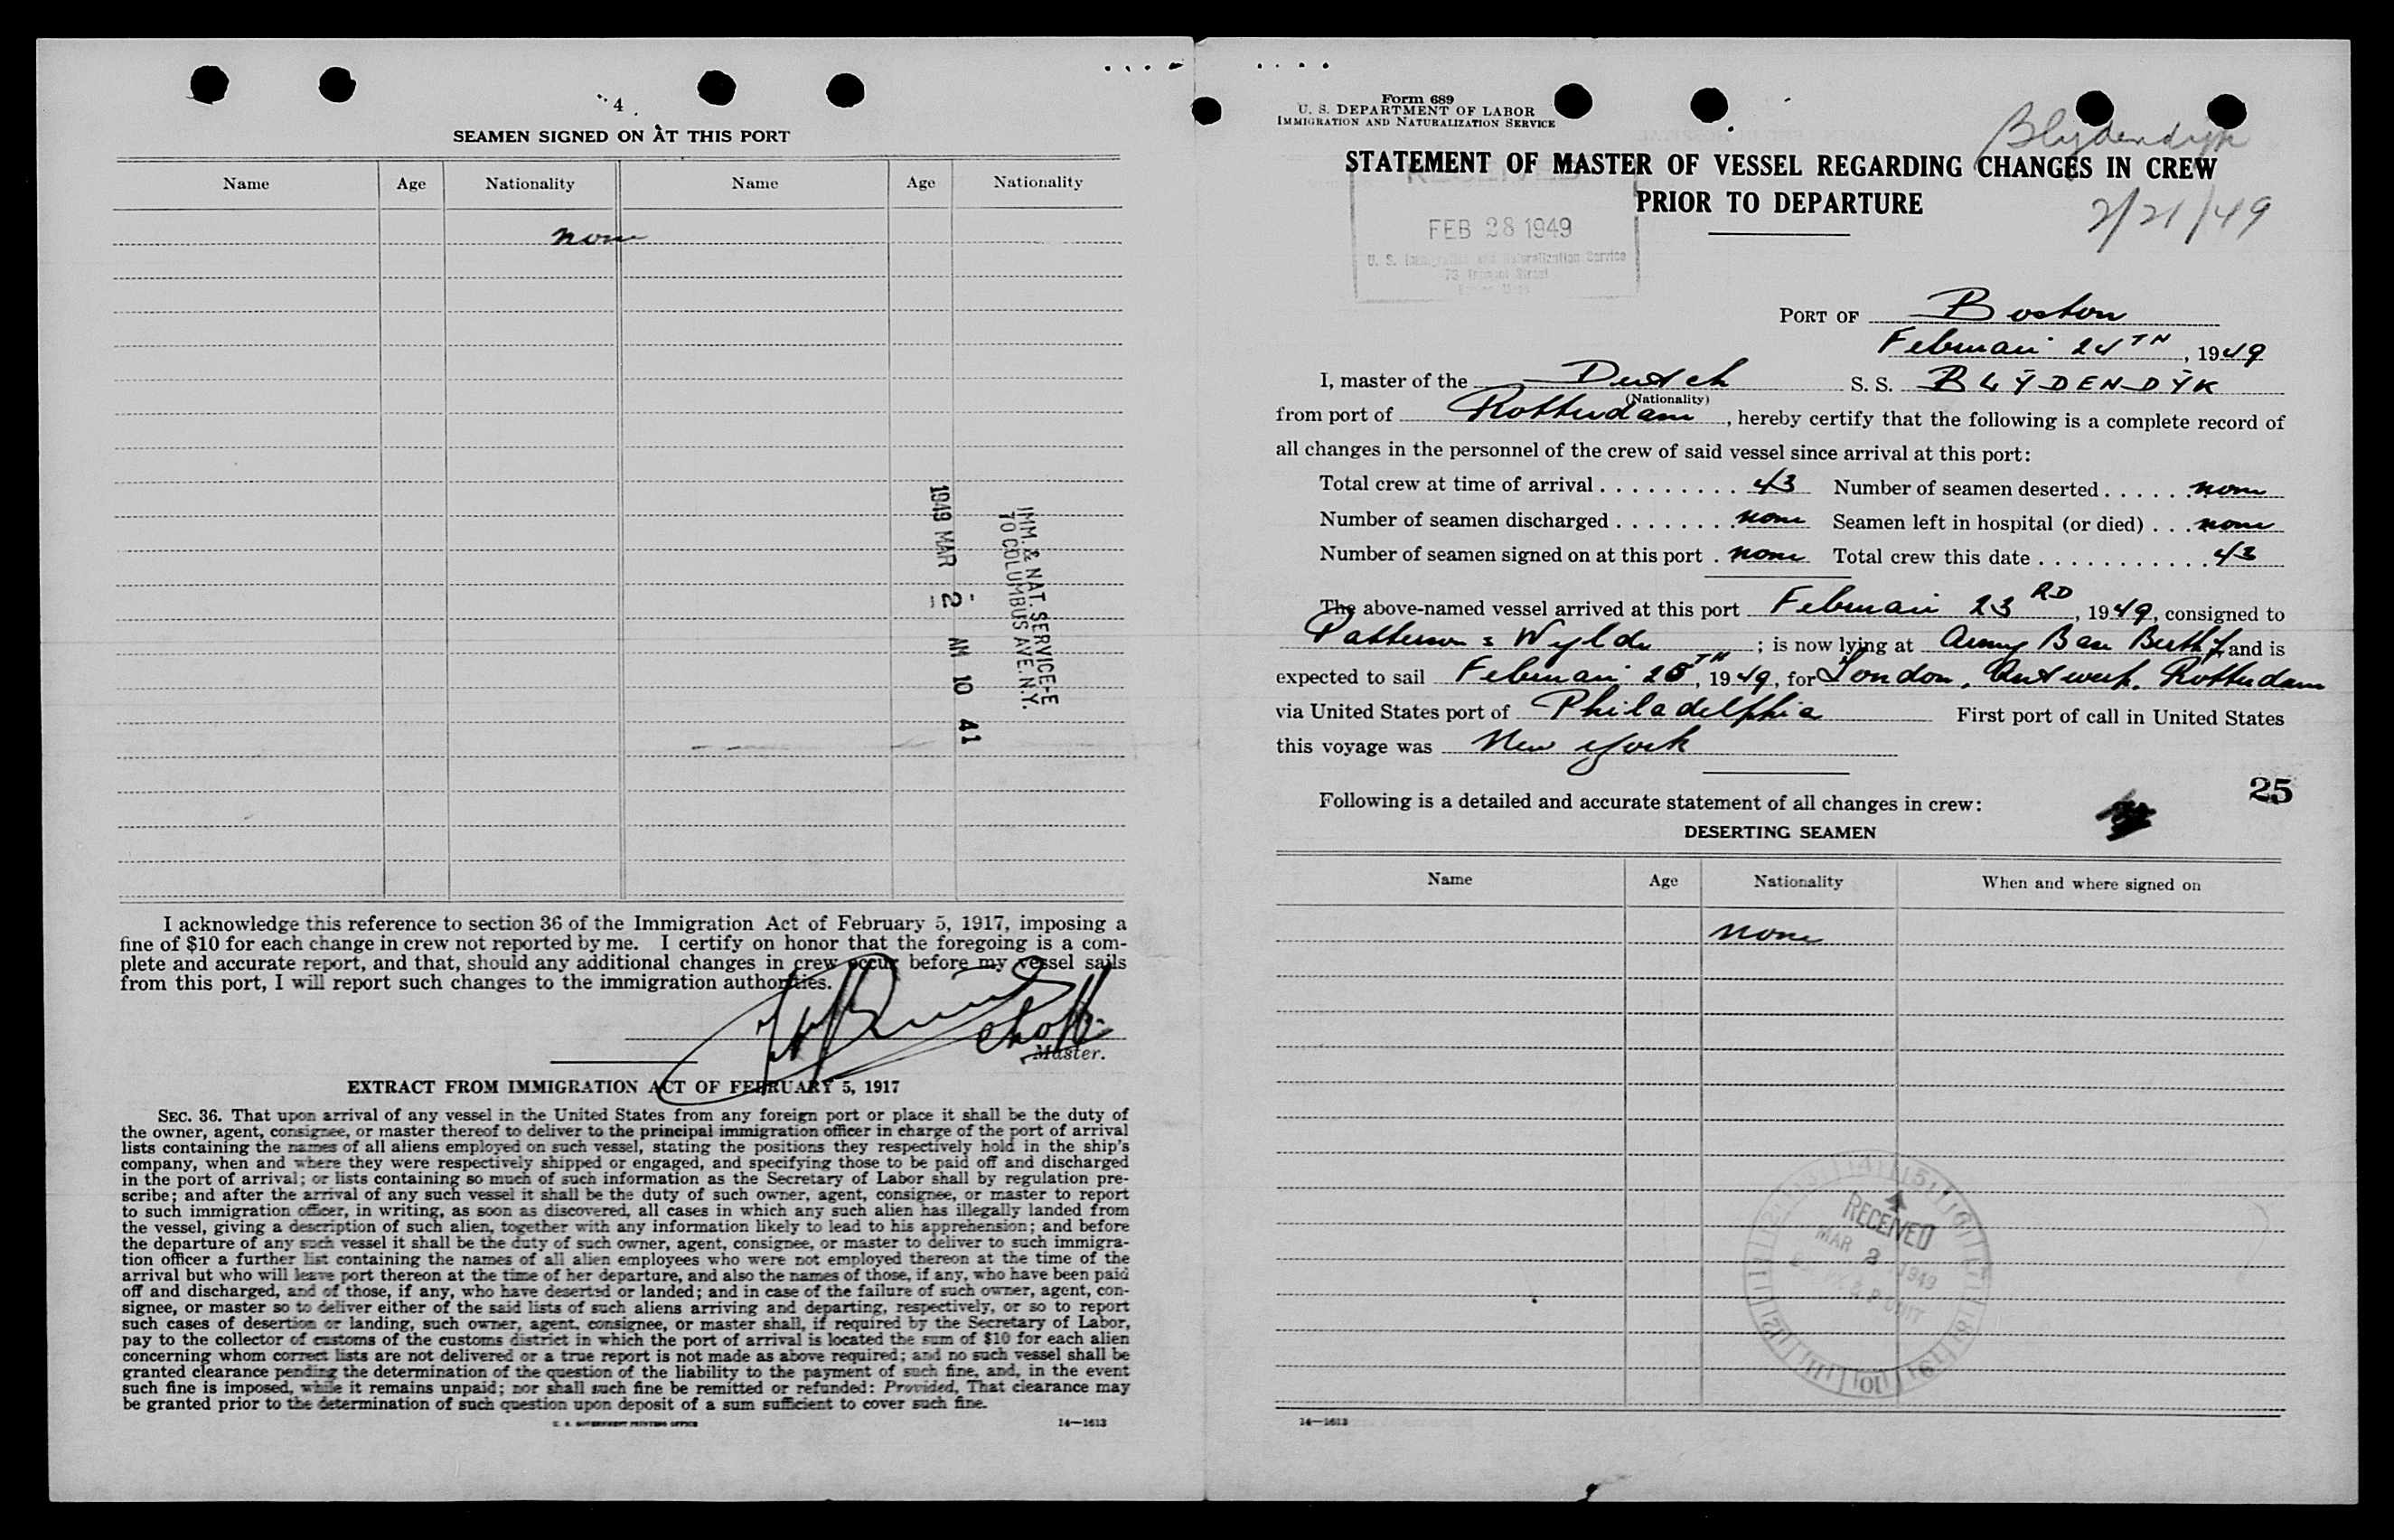 4
SEAMEN SIGNED ON AT THIS PORT
Name Age Nationality Name Age Nationality
none
1949 MAR -2 AM 10 41
IMM. & NAT. SERVICE-E
70 COLUMBUS AVE. N.Y.
I acknowledge this reference to section 36 of the Immigration Act of February 5, 1917, imposing a
fine of $10 for each change in crew not reported by me. I certify on honor that the foregoing is a com-
plete and accurate report, and that, should any additional changes in crew occur before my vessel sails
from this port, I will report such changes to the immigration authorities.
Master.
EXTRACT FROM IMMIGRATION ACT OF FEBRUARY 5, 1917
SEC. 36. That upon arrival of any vessel in the United States from any foreign port or place it shall be the duty of
the owner, agent, consignee, or master thereof to deliver to the principal immigration officer in charge of the port of arrival
lists containing the names of all aliens employed on such vessel, stating the positions they respectively hold in the ship's
company, when and where they were respectively shipped or engaged, and specifying those to be paid off and discharged
in the port of arrival; or lists containing so much of such information as the Secretary of Labor shall by regulation pre-
scribe; and after the arrival of any such vessel it shall be the duty of such owner, agent, consignee, or master to report
to such immigration officer, in writing, as soon as discovered, all cases in which any such alien has illegally landed from
the vessel, giving a description of such alien, together with any information likely to lead to his apprehension; and before
the departure of any such vessel it shall be the duty of such owner, agent, consignee, or master to deliver to such immigra-
tion officer a further list containing the names of all alien employees who were not employed thereon at the time of the
arrival but who will leave port thereon at the time of her departure, and also the names of those, if any, who have been paid
off and discharged, and of those, if any, who have deserted or landed; and in case of the failure of such owner, agent, con-
signee, or master so to deliver either of the said lists of such aliens arriving and departing, respectively, or so to report
such cases of desertion or landing, such owner, agent, consignee, or master shall, if required by the Secretary of Labor,
pay to the collector of customs of the customs district in which the port of arrival is located the sum of $10 for each alien
concerning whom correct lists are not delivered or a true report is not made as above required; and no such vessel shall be
granted clearance pending the determination of the question of the liability to the payment of such fine, and, in the event
such fine is imposed, while it remains unpaid; nor shall such fine be remitted or refunded: Provided, That clearance may
be granted prior to the determination of such question upon deposit of a sum sufficient to cover such fine.
U. S. GOVERNMENT PRINTING OFFICE 14—1613
Form 689
U. S. DEPARTMENT OF LABOR
IMMIGRATION AND NATURALIZATION SERVICE
Blijdendijk
STATEMENT OF MASTER OF VESSEL REGARDING CHANGES IN CREW
PRIOR TO DEPARTURE
2/21/49
RECEIVED
FEB 28 1949
U. S. Immigration and Naturalization Service
PORT OF Boston
Februari 24TH, 1949
I, master of the Dutch S. S. BLŸDENDŸK
(Nationality)
from port of Rotterdam, hereby certify that the following is a complete record of
all changes in the personnel of the crew of said vessel since arrival at this port:
Total crew at time of arrival . . . . . . . . . 43 Number of seamen deserted . . . . . . none
Number of seamen discharged . . . . . . . . none Seamen left in hospital (or died) . . . none
Number of seamen signed on at this port . none Total crew this date . . . . . . . . . . . . 43
The above-named vessel arrived at this port Februari 23RD, 1949, consigned to
Patterson & Wylde ; is now lying at Army Base Berth and is
expected to sail Februari 28TH, 1949, for London, Antwerp, Rotterdam
via United States port of Philadelphia First port of call in United States
this voyage was New York
25
Following is a detailed and accurate statement of all changes in crew:
DESERTING SEAMEN
Name Age Nationality When and where signed on
none
RECEIVED
MAR 1949
14—1613